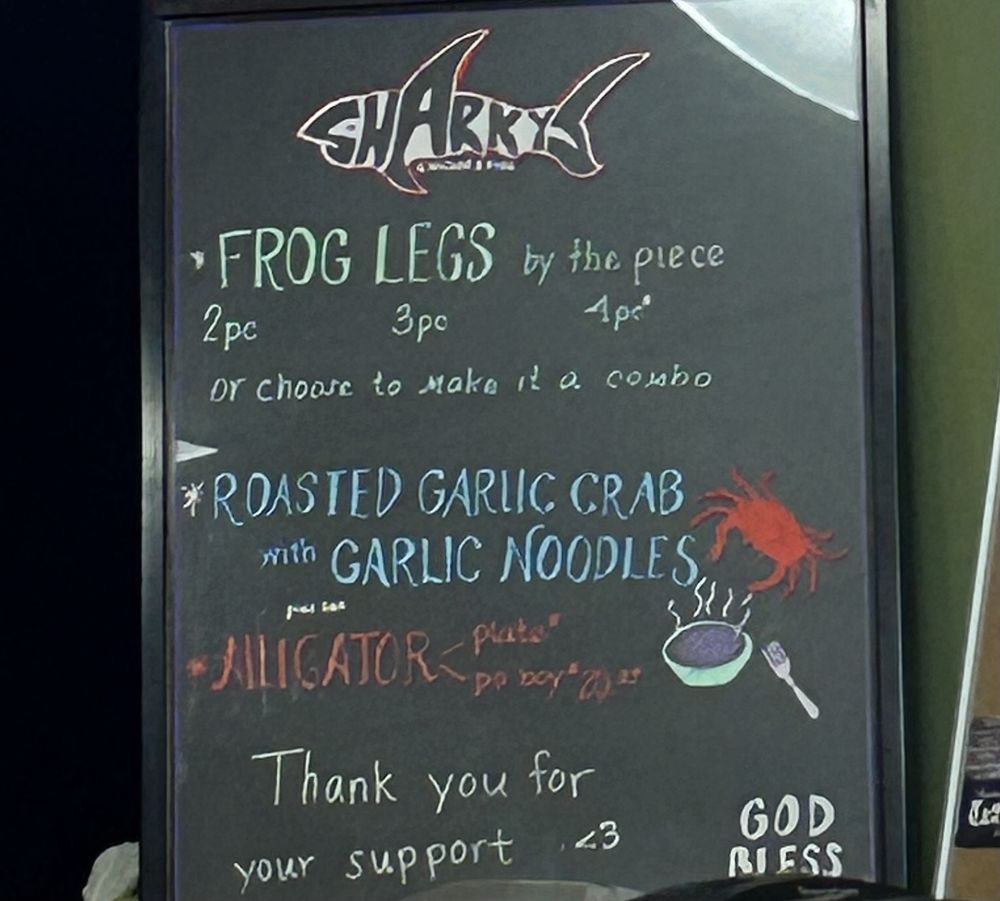 SHARKYS
* FROG LEGS by the piece
2pc 3pc 4pc
or choose to make it a combo
* ROASTED GARLIC CRAB
with GARLIC NOODLES
* ALLIGATOR < plate
po boy
Thank you for
your support <3
GOD
BLESS